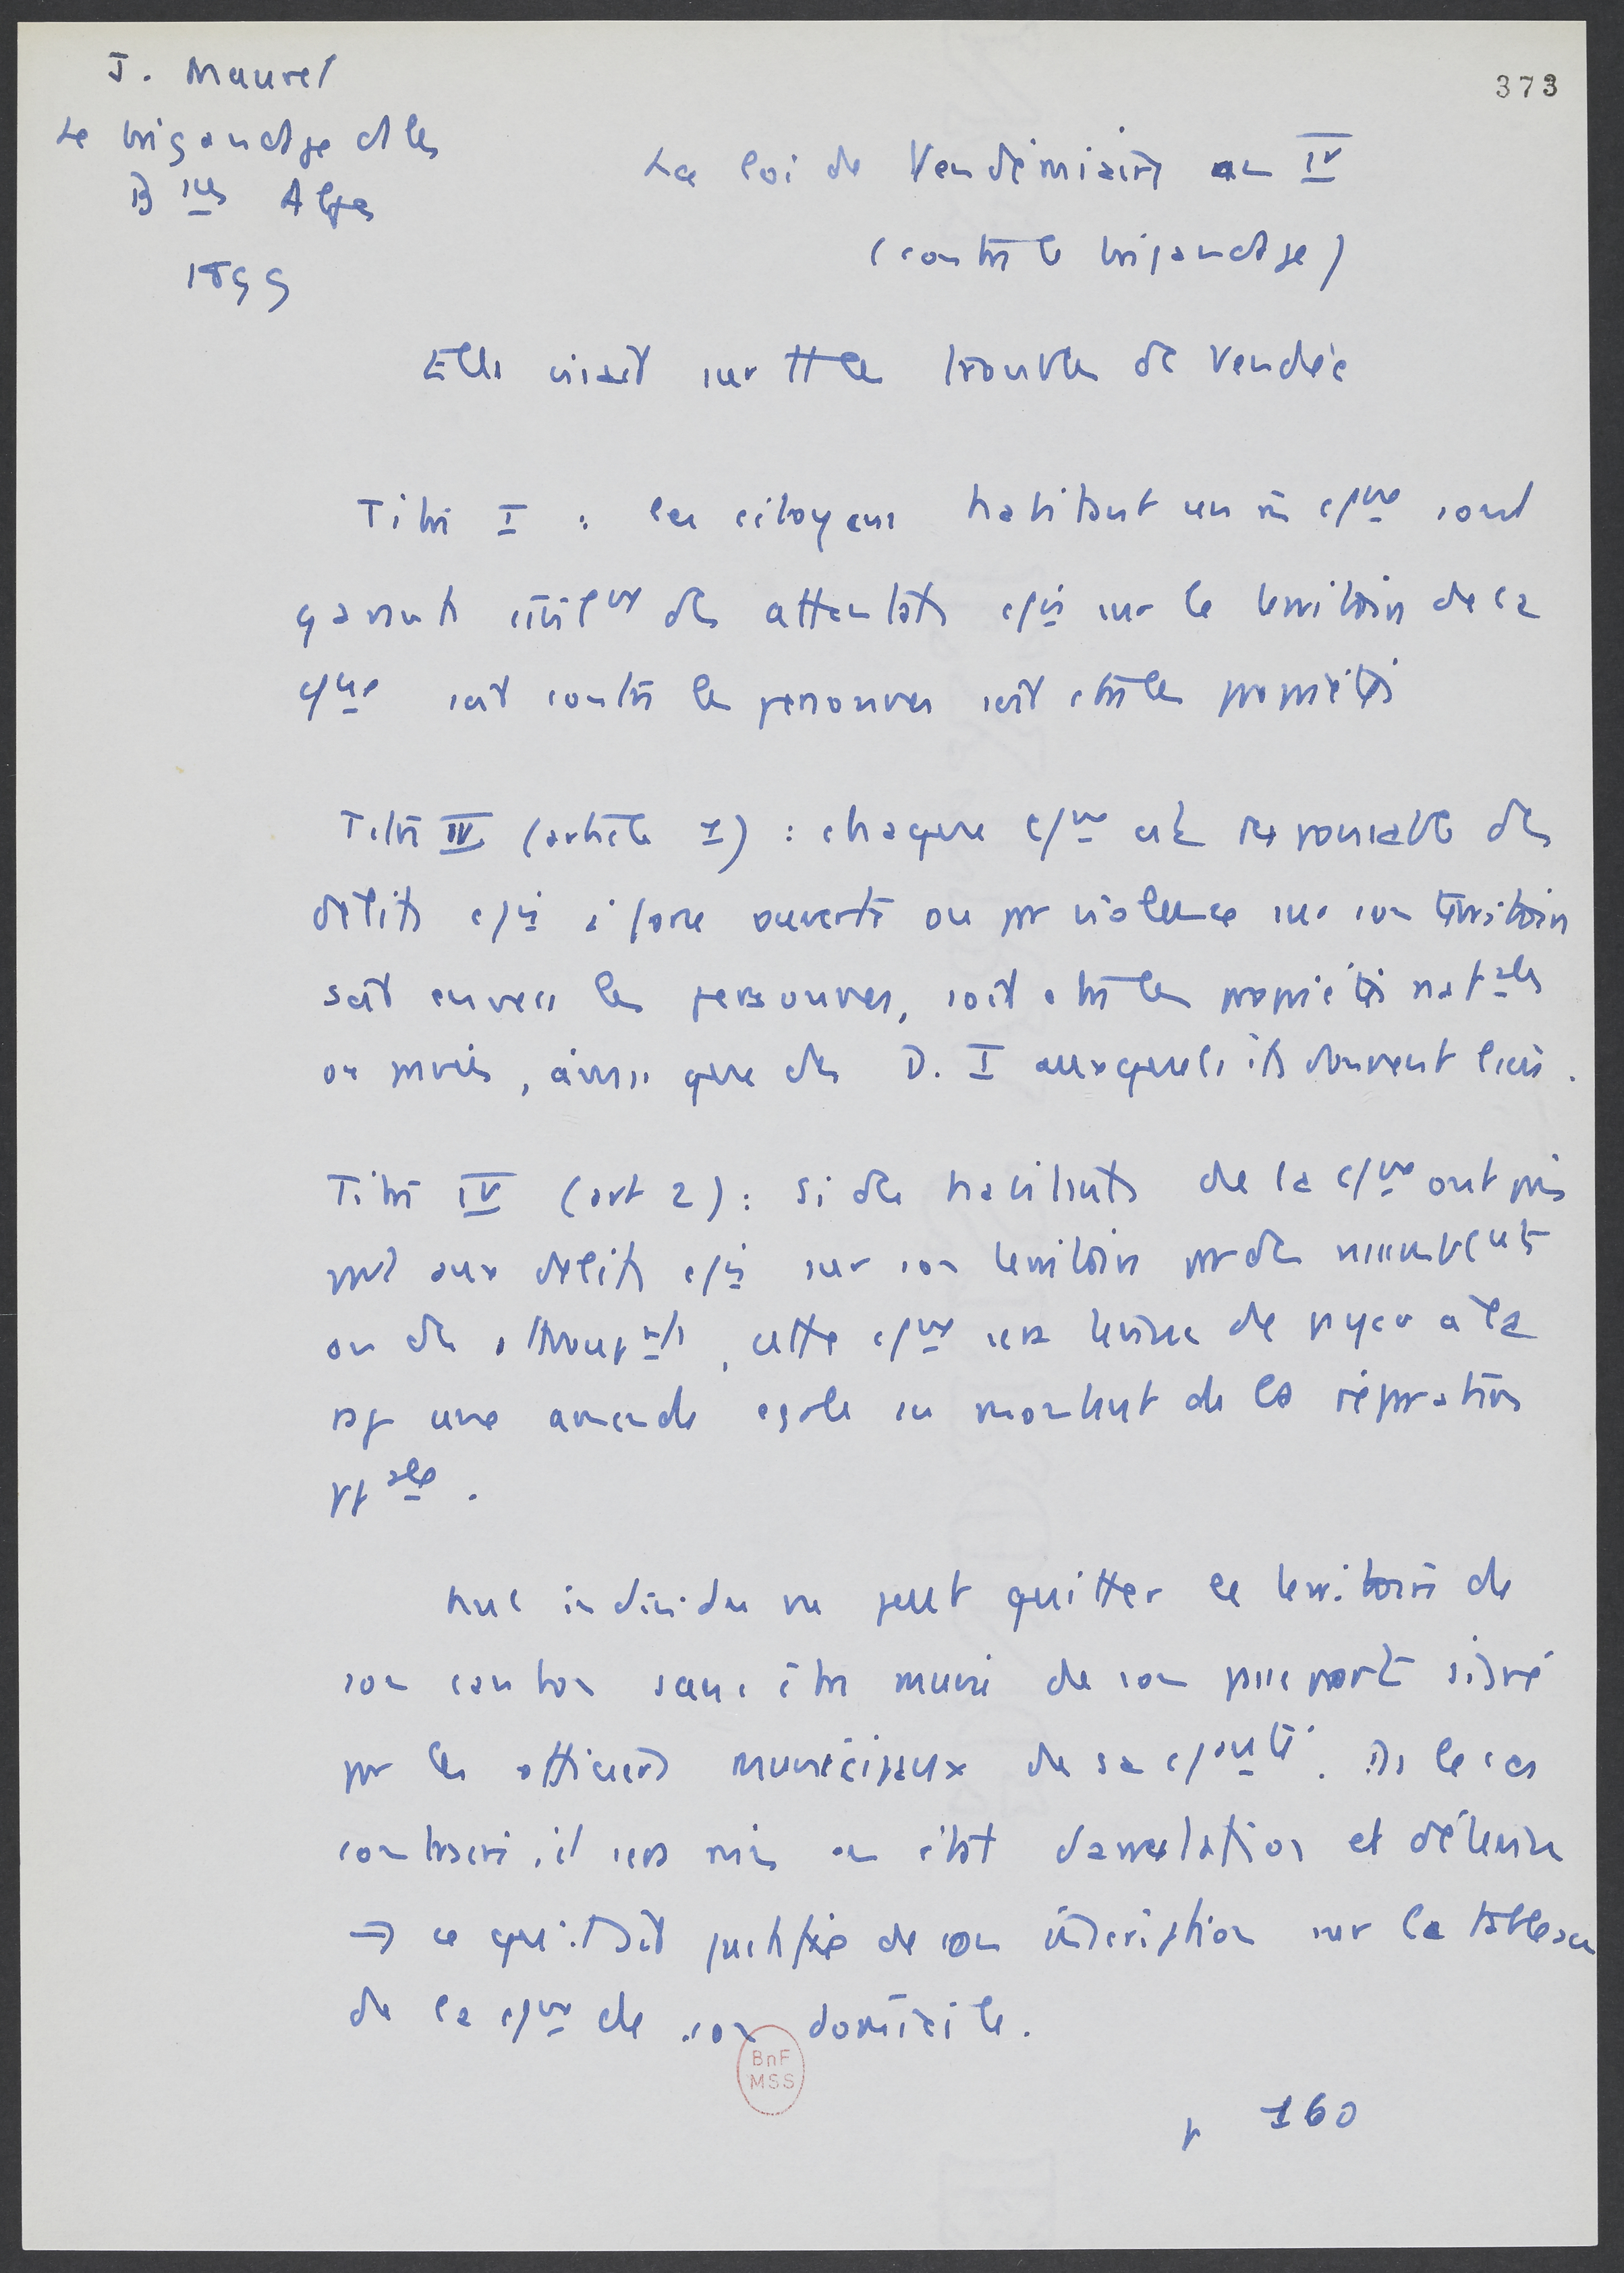 J. Maurel
373
Le brigandage ds les
B ses Alpes
1899
La loi de Vendémiaire an IV
(contre le brigandage)
Elle visait sur tt les troubles de Vendée
Titre I : les citoyens habitant un m cne sont
garants civilnt des attentats cis sur le territoire de la
cne soit contre les personnes soit ctre les propriétés
Titre IV (article 1) : chaque cne est responsable des
délits cis à force ouverte ou par violence sur son territoire
soit envers les personnes, soit ctre les propriétés natales
ou privées, ainsi que des D. I auxquels ils donnent lieu.
Titre IV (art 2) : si des habitants de la cne ont pris
part aux délits cis sur son territoire par des
ou des attroupnts, cette cne sera tenue de payer à la
rép une amende égale au montant de la réparation
ppale.
Nul individu ne peut quitter le territoire de
son canton sans être muni de son passeport signé
par les officiers municipaux de sa cnauté. Ds le cas
contraire, il sera mis en état d'arrestation et détenu
→ ce qu'il ait justifié de son inscription sur le tableau
de la cne de son domicile.
BnF
MSS
p 160